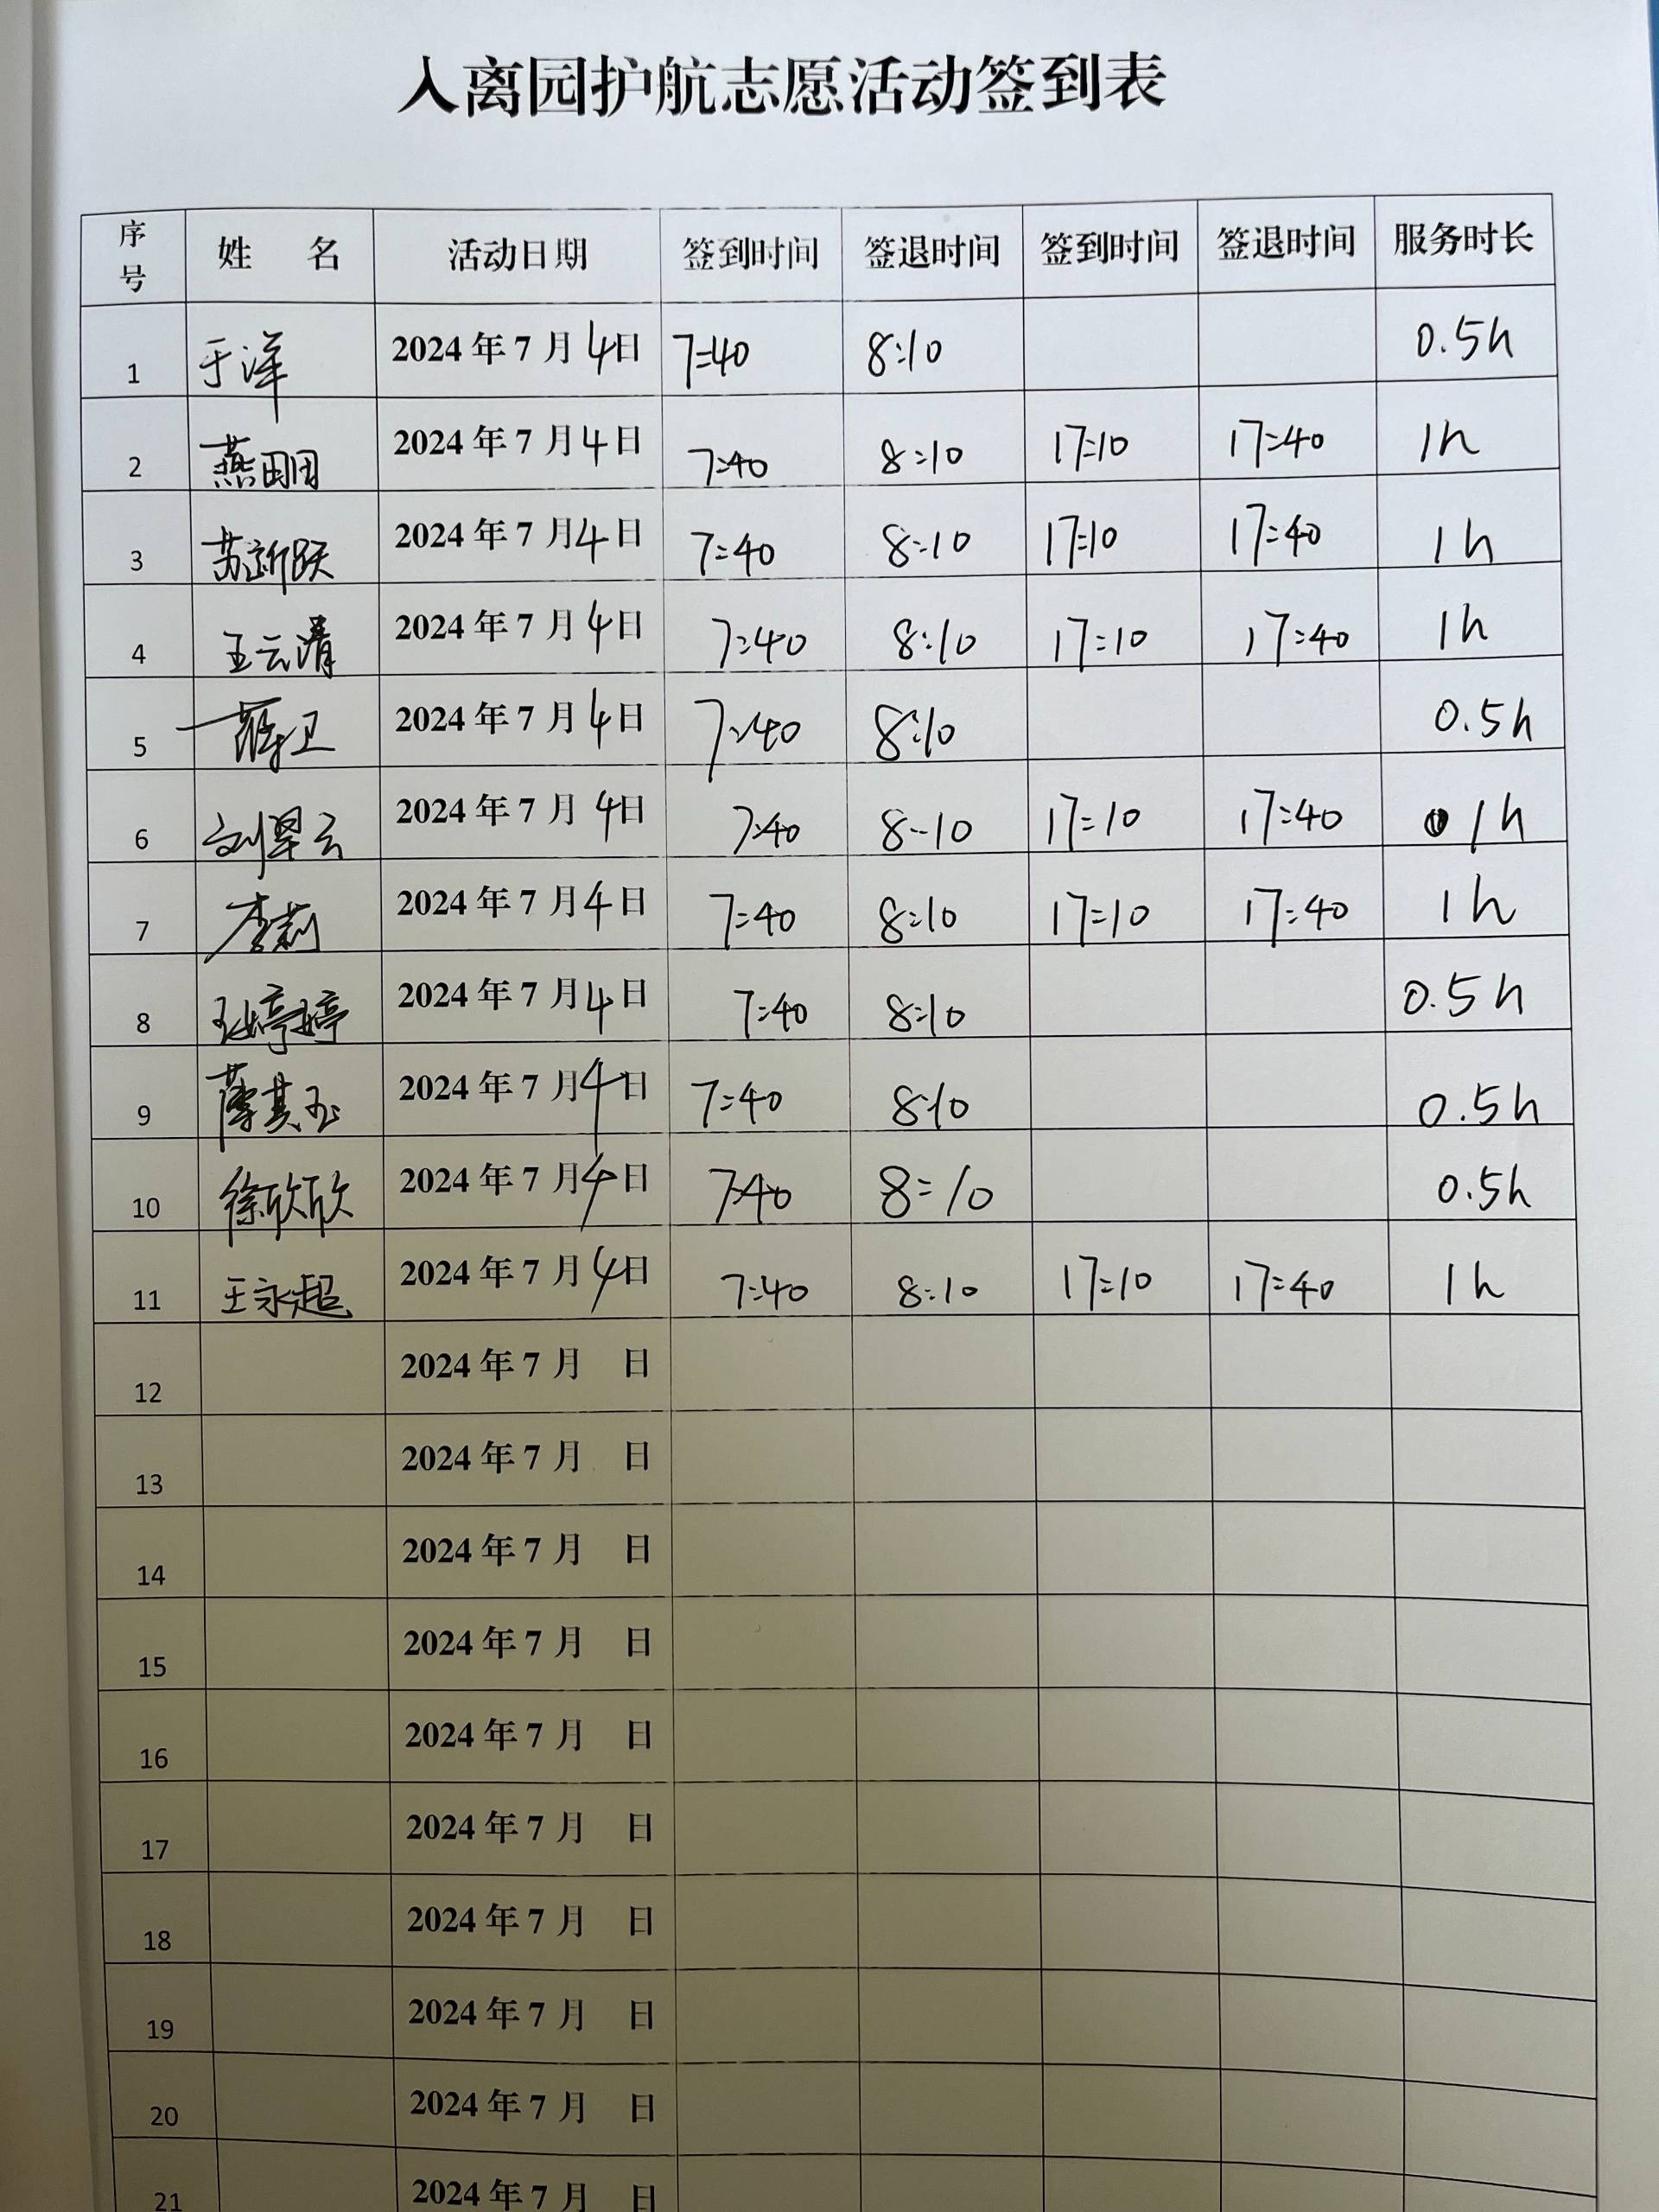 入离园护航志愿活动签到表
序号 姓 名 活动日期 签到时间 签退时间 签到时间 签退时间 服务时长
1 于洋 2024年7月4日 7:40 8:10 0.5h
2 燕团团 2024年7月4日 7:40 8:10 17:10 17:40 1h
3 苏新跃 2024年7月4日 7:40 8:10 17:10 17:40 1h
4 王云清 2024年7月4日 7:40 8:10 17:10 17:40 1h
5 薛卫 2024年7月4日 7:40 8:10 0.5h
6 刘翠云 2024年7月4日 7:40 8:10 17:10 17:40 1h
7 李莉 2024年7月4日 7:40 8:10 17:10 17:40 1h
8 王婷婷 2024年7月4日 7:40 8:10 0.5h
9 2024年7月4日 7:40 8:10 0.5h
10 徐欣欣 2024年7月4日 7:40 8:10 0.5h
11 王永超 2024年7月4日 7:40 8:10 17:10 17:40 1h
12 2024年7月 日
13 2024年7月 日
14 2024年7月 日
15 2024年7月 日
16 2024年7月 日
17 2024年7月 日
18 2024年7月 日
19 2024年7月 日
20 2024年7月 日
21 2024年7月 日